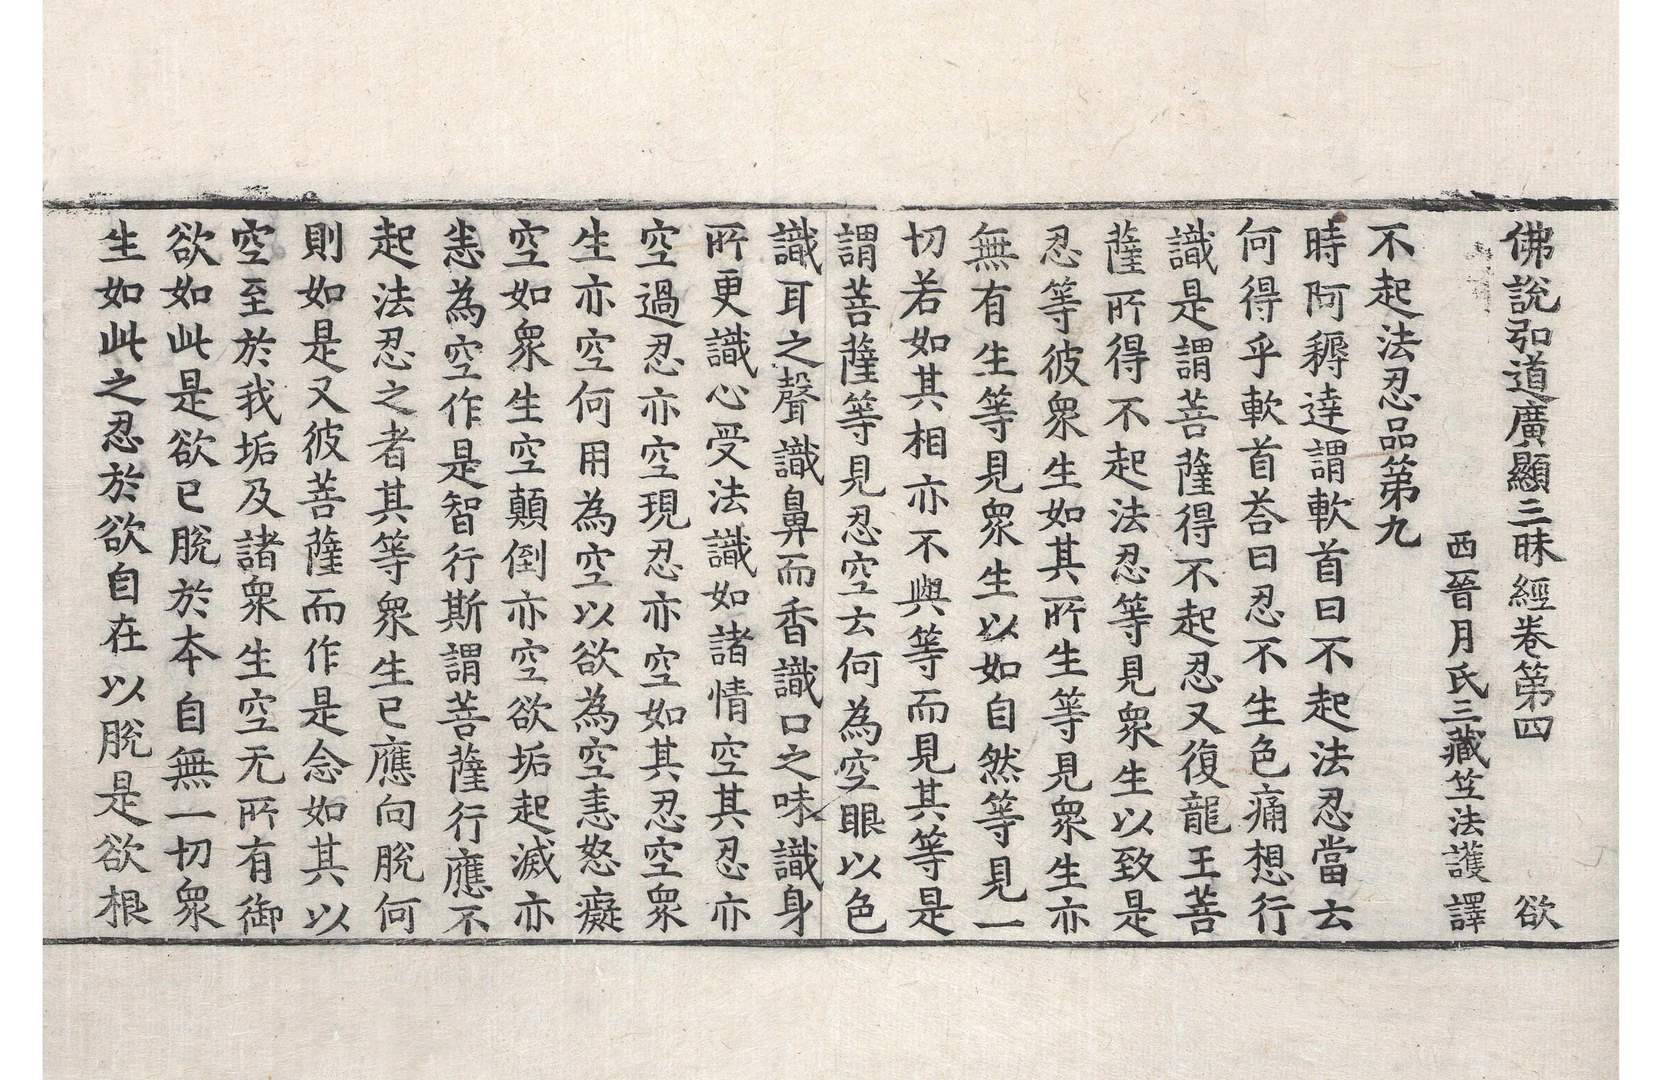 佛說弘道廣顯三昧經卷第四　欲
西晉月氏三藏竺法護譯
不起法忍品第九
時阿耨達謂軟首曰不起法忍當云
何得乎軟首荅曰忍不生色痛想行
識是謂菩薩得不起忍又復龍王菩
薩所得不起法忍等見眾生以致是
忍等彼眾生如其所生等見眾生亦
無有生等見眾生以如自然等見一
切若如其相亦不與等而見其等是
謂菩薩等見忍空云何為空眼以色
識耳之聲識鼻而香識口之味識身
所更識心受法識如諸情空其忍亦
空過忍亦空現忍亦空如其忍空眾
生亦空何用為空以欲為空恚怒癡
空如眾生空顛倒亦空欲垢起滅亦
恚為空作是智行斯謂菩薩行應不
起法忍之者其等眾生已應向脫何
則如是又彼菩薩而作是念如其以
空至於我垢及諸眾生空无所有御
欲如此是欲已脫於本自無一切眾
生如此之忍於欲自在以脫是欲根